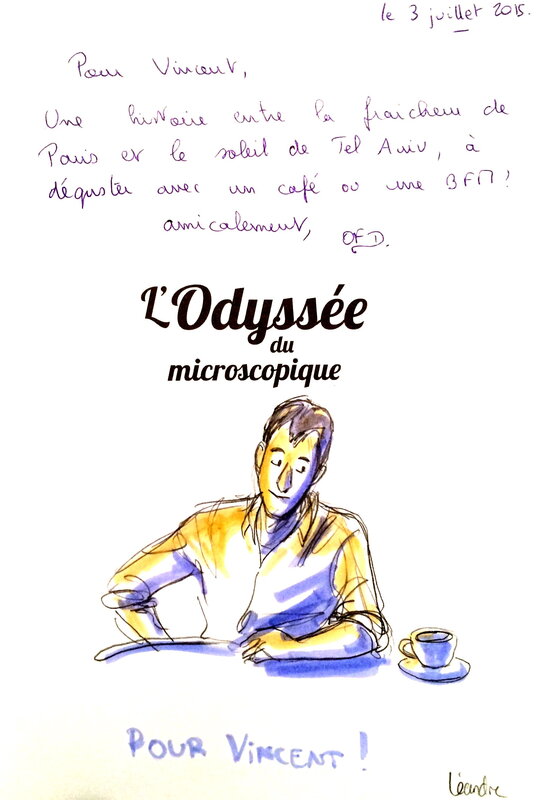 le 3 juillet 2015.
Pour Vincent,
Une histoire entre la fraicheur de
Paris et le soleil de Tel Aviv, à
déguster avec un café ou une BFM!
amicalement, OFD.
L'Odyssée
du
microscopique
POUR VINCENT !
Léandre